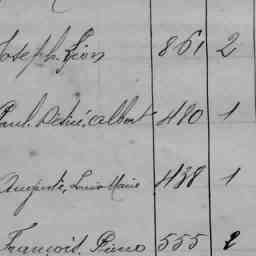 Joseph. Léon 861 2
Paul. Désiré, Albert 480 1
Auguste, Louis Marie 438 1
François. Pierre 555 2